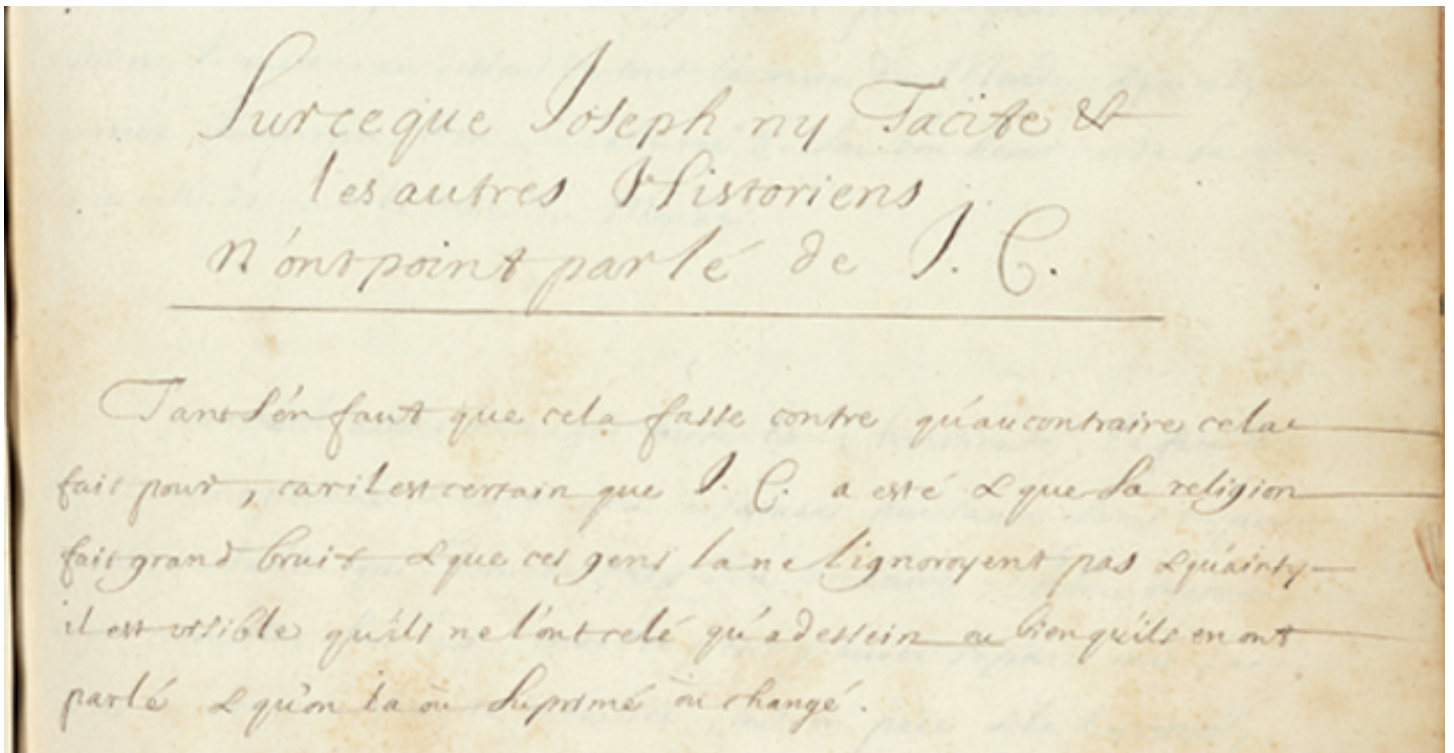 Sur ce que Joseph ny Tacite &
les autres Historiens
n'ont point parlé de J. C.
Tant s'én faut que cela fasse contre qu'au contraire cela
fait pour, car il est certain que J. C. a esté & que sa religion
fait grand bruit & que ces gens la ne lignoroyent pas & qu'ainsy
il est visible qu'ils ne l'ont celé qu'a dessein ou bien qu'ils en ont
parlé & qu'on la ou suprimé ou changé.